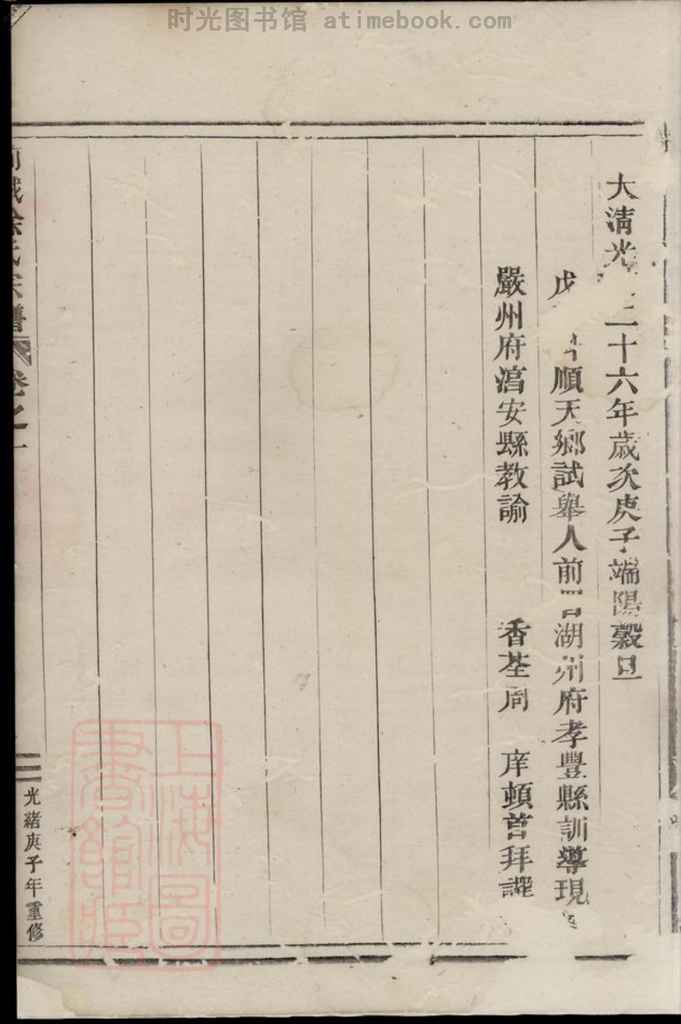 时光图书馆 atimebook.com
大清光二十六年歲次庚子端陽穀旦
戊 順天鄉試舉人前 湖州府孝豐縣訓導現
嚴州府淳安縣教諭 香荃周 庠頓首拜譔
徐氏宗譜 卷之一
光緒庚子年重修
上海圖書館藏